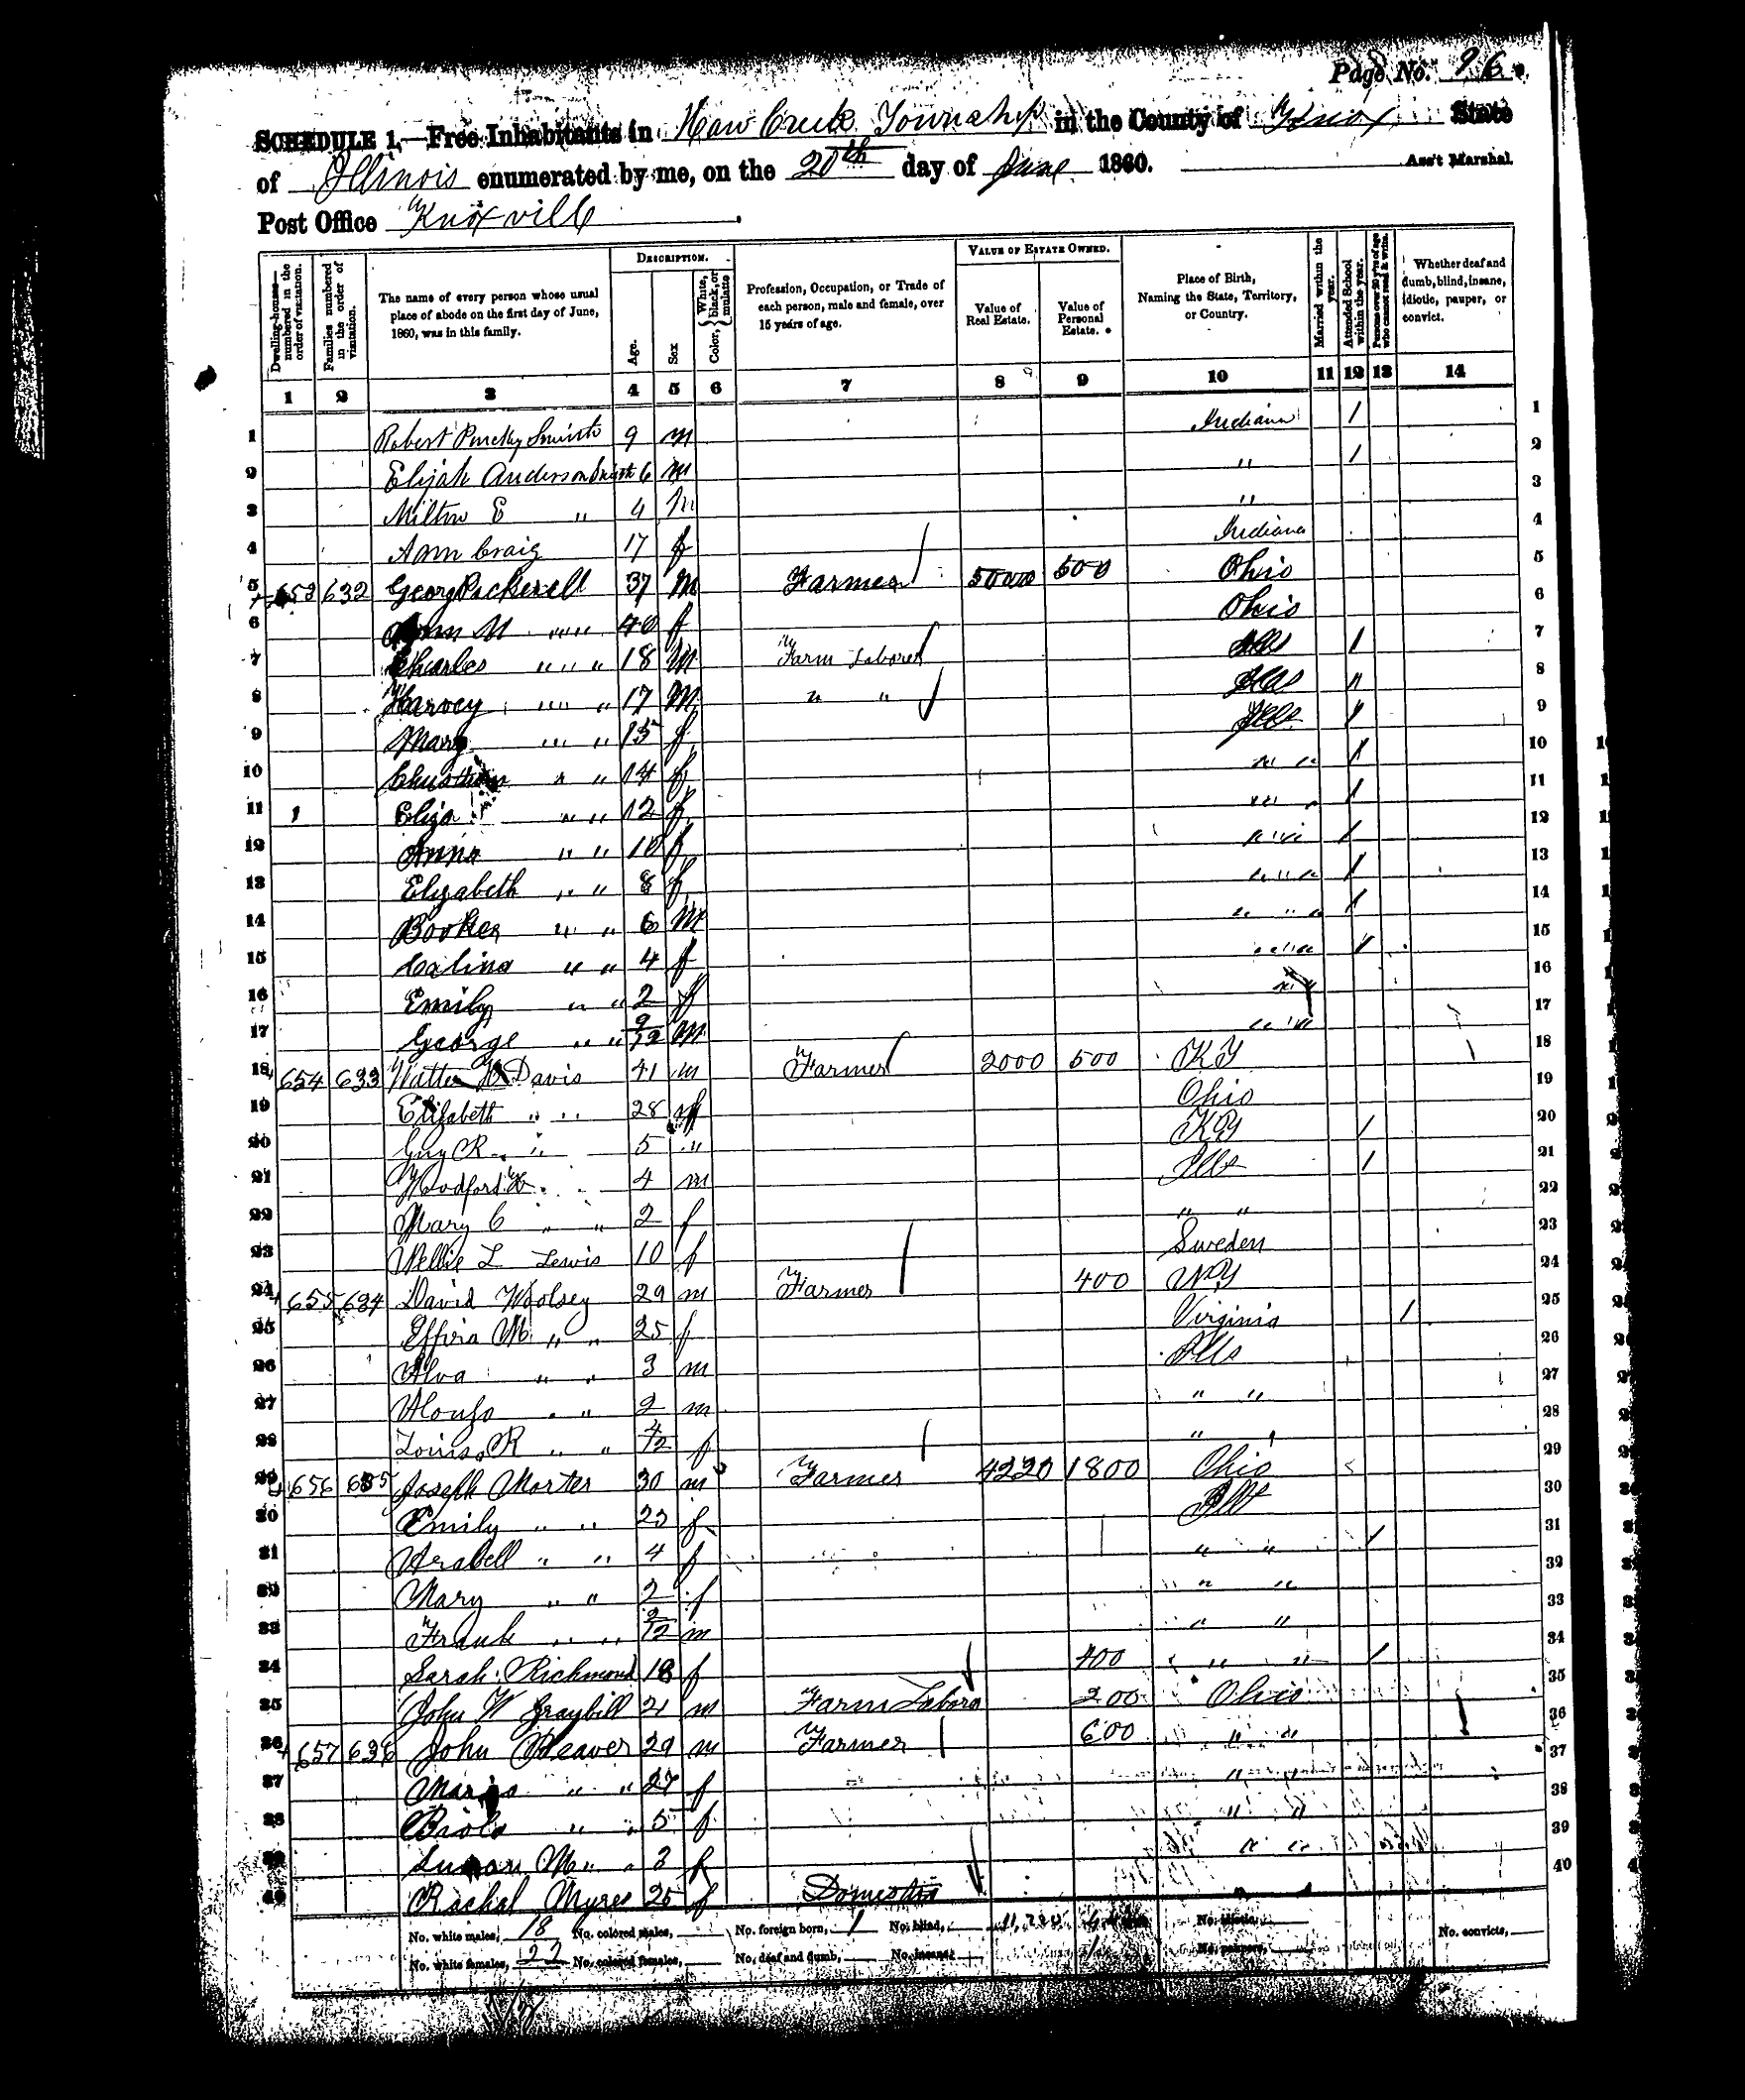 Page No. 96
SCHEDULE 1.—Free Inhabitants in Haw Creek Township in the County of Knox State
of Illinois enumerated by me, on the 20th day of June 1860. Ass't Marshal.
Post Office Knoxville
Dwelling-houses—numbered in the order of visitation.
Families numbered in the order of visitation.
The name of every person whose usual place of abode on the first day of June, 1860, was in this family.
DESCRIPTION.
Age.
Sex
Color, { White, black, or mulatto
Profession, Occupation, or Trade of each person, male and female, over 15 years of age.
VALUE OF ESTATE OWNED.
Value of Real Estate.
Value of Personal Estate.
Place of Birth, Naming the State, Territory, or Country.
Married within the year.
Attended School within the year.
Persons over 20 y'rs of age who cannot read & write.
Whether deaf and dumb, blind, insane, idiotic, pauper, or convict.
1 2 3 4 5 6 7 8 9 10 11 12 13 14
1 Robert Smith 9 m Indiana / 1
2 Elijah Anderson Smith 6 m " / 2
3 Milton E " 4 m " 3
4 Ann Craig 17 f Indiana 4
5 653 632 Georg Pickerell 37 M Farmer 5000 500 Ohio 5
6 Ann M " " 40 f Ohio 6
7 Charles " " " 18 M Farm Laborer Ills / 7
8 Harvey " " " 17 M " " Ills " 8
9 Mary " " " 15 f Ills / 9
10 " " 14 f " " / 10
11 Eliza " " 12 f " " / 11
12 Anna " " 10 f " " / 12
13 Elizabeth " " 8 f " " / 13
14 Booker " " 6 M " " / 14
15 " " 4 f " " / 15
16 Emily " " 2 f " " 16
17 George " " 9/12 M " " 17
18 654 633 Davis 41 m Farmer 2000 500 KY 18
19 Elizabeth " " 28 f Ohio 19
20 Guy R " 5 " KY / 20
21 Woodford 4 m Ills / 21
22 Mary C " " 2 f " " 22
23 Nellie L Lewis 10 f Sweden 23
24 655 634 David Woolsey 29 m Farmer 400 NY 24
25 M " " 25 f Virginia / 25
26 Alva " " 3 m Ills 26
27 Alonzo " " 2 m " " 27
28 Louisa R " " 4/12 f " " 28
29 656 635 Joseph Morter 30 m Farmer 4220 1800 Ohio 29
30 Emily " " 23 f Ills 30
31 Arabell " " 4 f " " / 31
32 Mary " " 2 f " " 32
33 Frank " " 2/12 m " " 33
34 Sarah Richmond 18 f 400 " " / 34
35 John W Graybill 21 m Farm Labora 200 Ohio 35
36 657 636 John Weaver 29 m Farmer 600 " " 36
37 " " 27 f " " 37
38 " " 5 f " " 38
39 M " " 3 f " " 39
40 Rachal Myres 25 f Domestic " " 40
No. white males, 18 No. colored males, No. foreign born, 1 No. blind, No. idiotic,
No. white females, 22 No. colored females, No. deaf and dumb, No. insane, No. paupers, No. convicts,